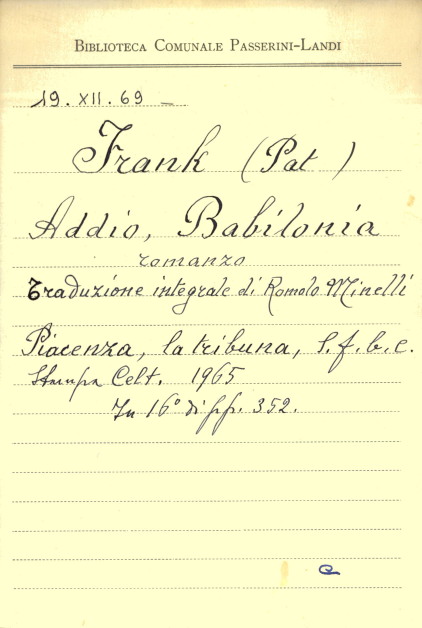 BIBLIOTECA COMUNALE PASSERINI-LANDI
19. XII. 69 —
Frank (Pat)
Addio, Babilonia
romanzo
Traduzione integrale di Romolo Minelli
Piacenza, la tribuna, S. f. b. c.
Stampa Celt. 1965
In 16° di pp. 352.
e